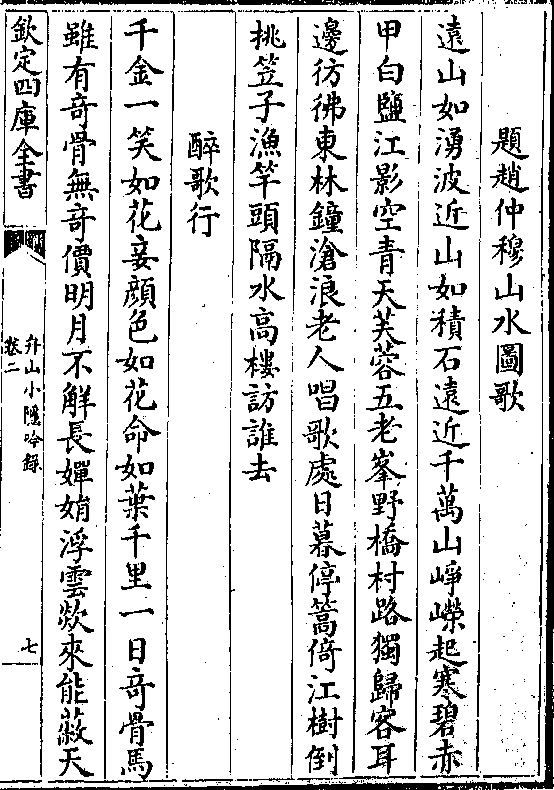 題趙仲穆山水圖歌
遠山如湧波近山如積石遠近千萬山崢嶸起寒碧赤
甲白鹽江影空青天芙蓉五老峯野橋村路獨歸客耳
邊彷彿東林鐘滄浪老人唱歌處日暮停篙倚江樹倒
桃笠子漁竿頭隔水高樓訪誰去
醉歌行
千金一笑如花妾顔色如花命如葉千里一日竒骨馬
雖有竒骨無竒價明月不解長嬋娟浮雲欻來能蔽天
欽定四庫全書
弁山小隱吟録
卷二
七